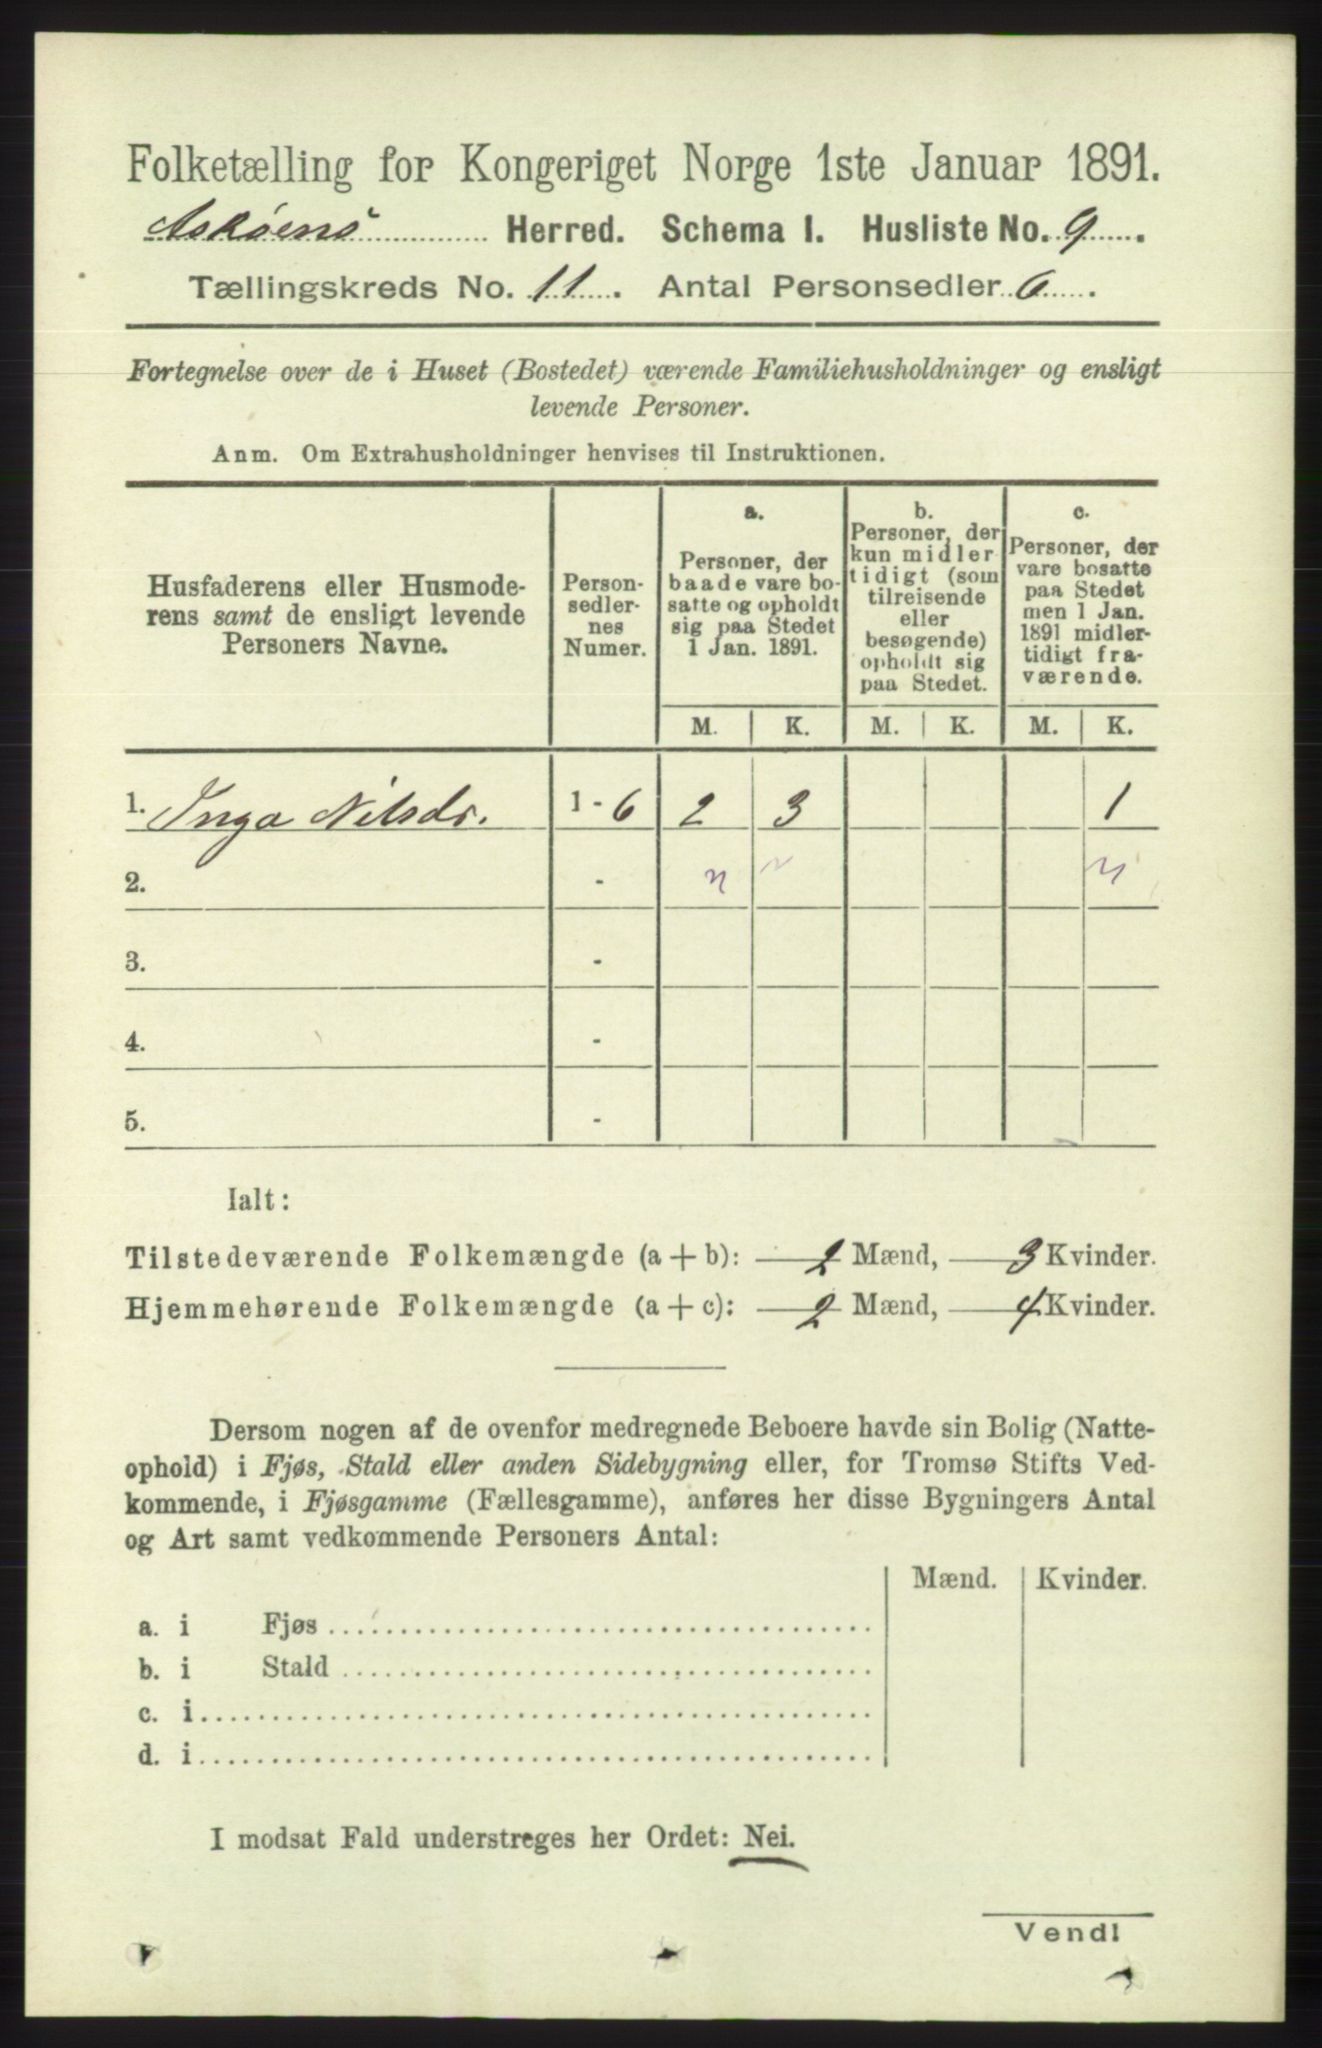 Folketælling for Kongeriget Norge 1ste Januar 1891.
Askøens Herred. Schema I. Husliste No. 9.
Tællingskreds No. 11. Antal Personsedler 6.
Fortegnelse over de i Huset (Bostedet) værende Familiehusholdninger og ensligt
levende Personer.
Anm. Om Extrahusholdninger henvises til Instruktionen.
Husfaderens eller Husmode-
rens samt de ensligt levende
Personers Navne.
Person-
sedler-
nes
Numer.
a.
Personer, der
baade vare bo-
satte og opholdt
sig paa Stedet
1 Jan. 1891.
b.
Personer, der
kun midler
tidigt (som
tilreisende
eller
besøgende)
opholdt sig
paa Stedet.
c.
Personer, der
vare bosatte
paa Stedet
men 1 Jan.
1891 midler-
tidigt fra-
værende.
M. K. M. K. M. K.
1. Inga Nilsdr. 1 - 6 2 3 1
2. -
3. -
4. -
5. -
Ialt:
Tilstedeværende Folkemængde (a + b): 2 Mænd, 3 Kvinder.
Hjemmehørende Folkemængde (a + c): 2 Mænd, 4 Kvinder.
Dersom nogen af de ovenfor medregnede Beboere havde sin Bolig (Natte-
ophold) i Fjøs, Stald eller anden Sidebygning eller, for Tromsø Stifts Ved-
kommende, i Fjøsgamme (Fællesgamme), anføres her disse Bygningers Antal
og Art samt vedkommende Personers Antal:
Mænd. Kvinder.
a. i Fjøs
b. i Stald
c. i
d. i
I modsat Fald understreges her Ordet: Nei.
Vend!